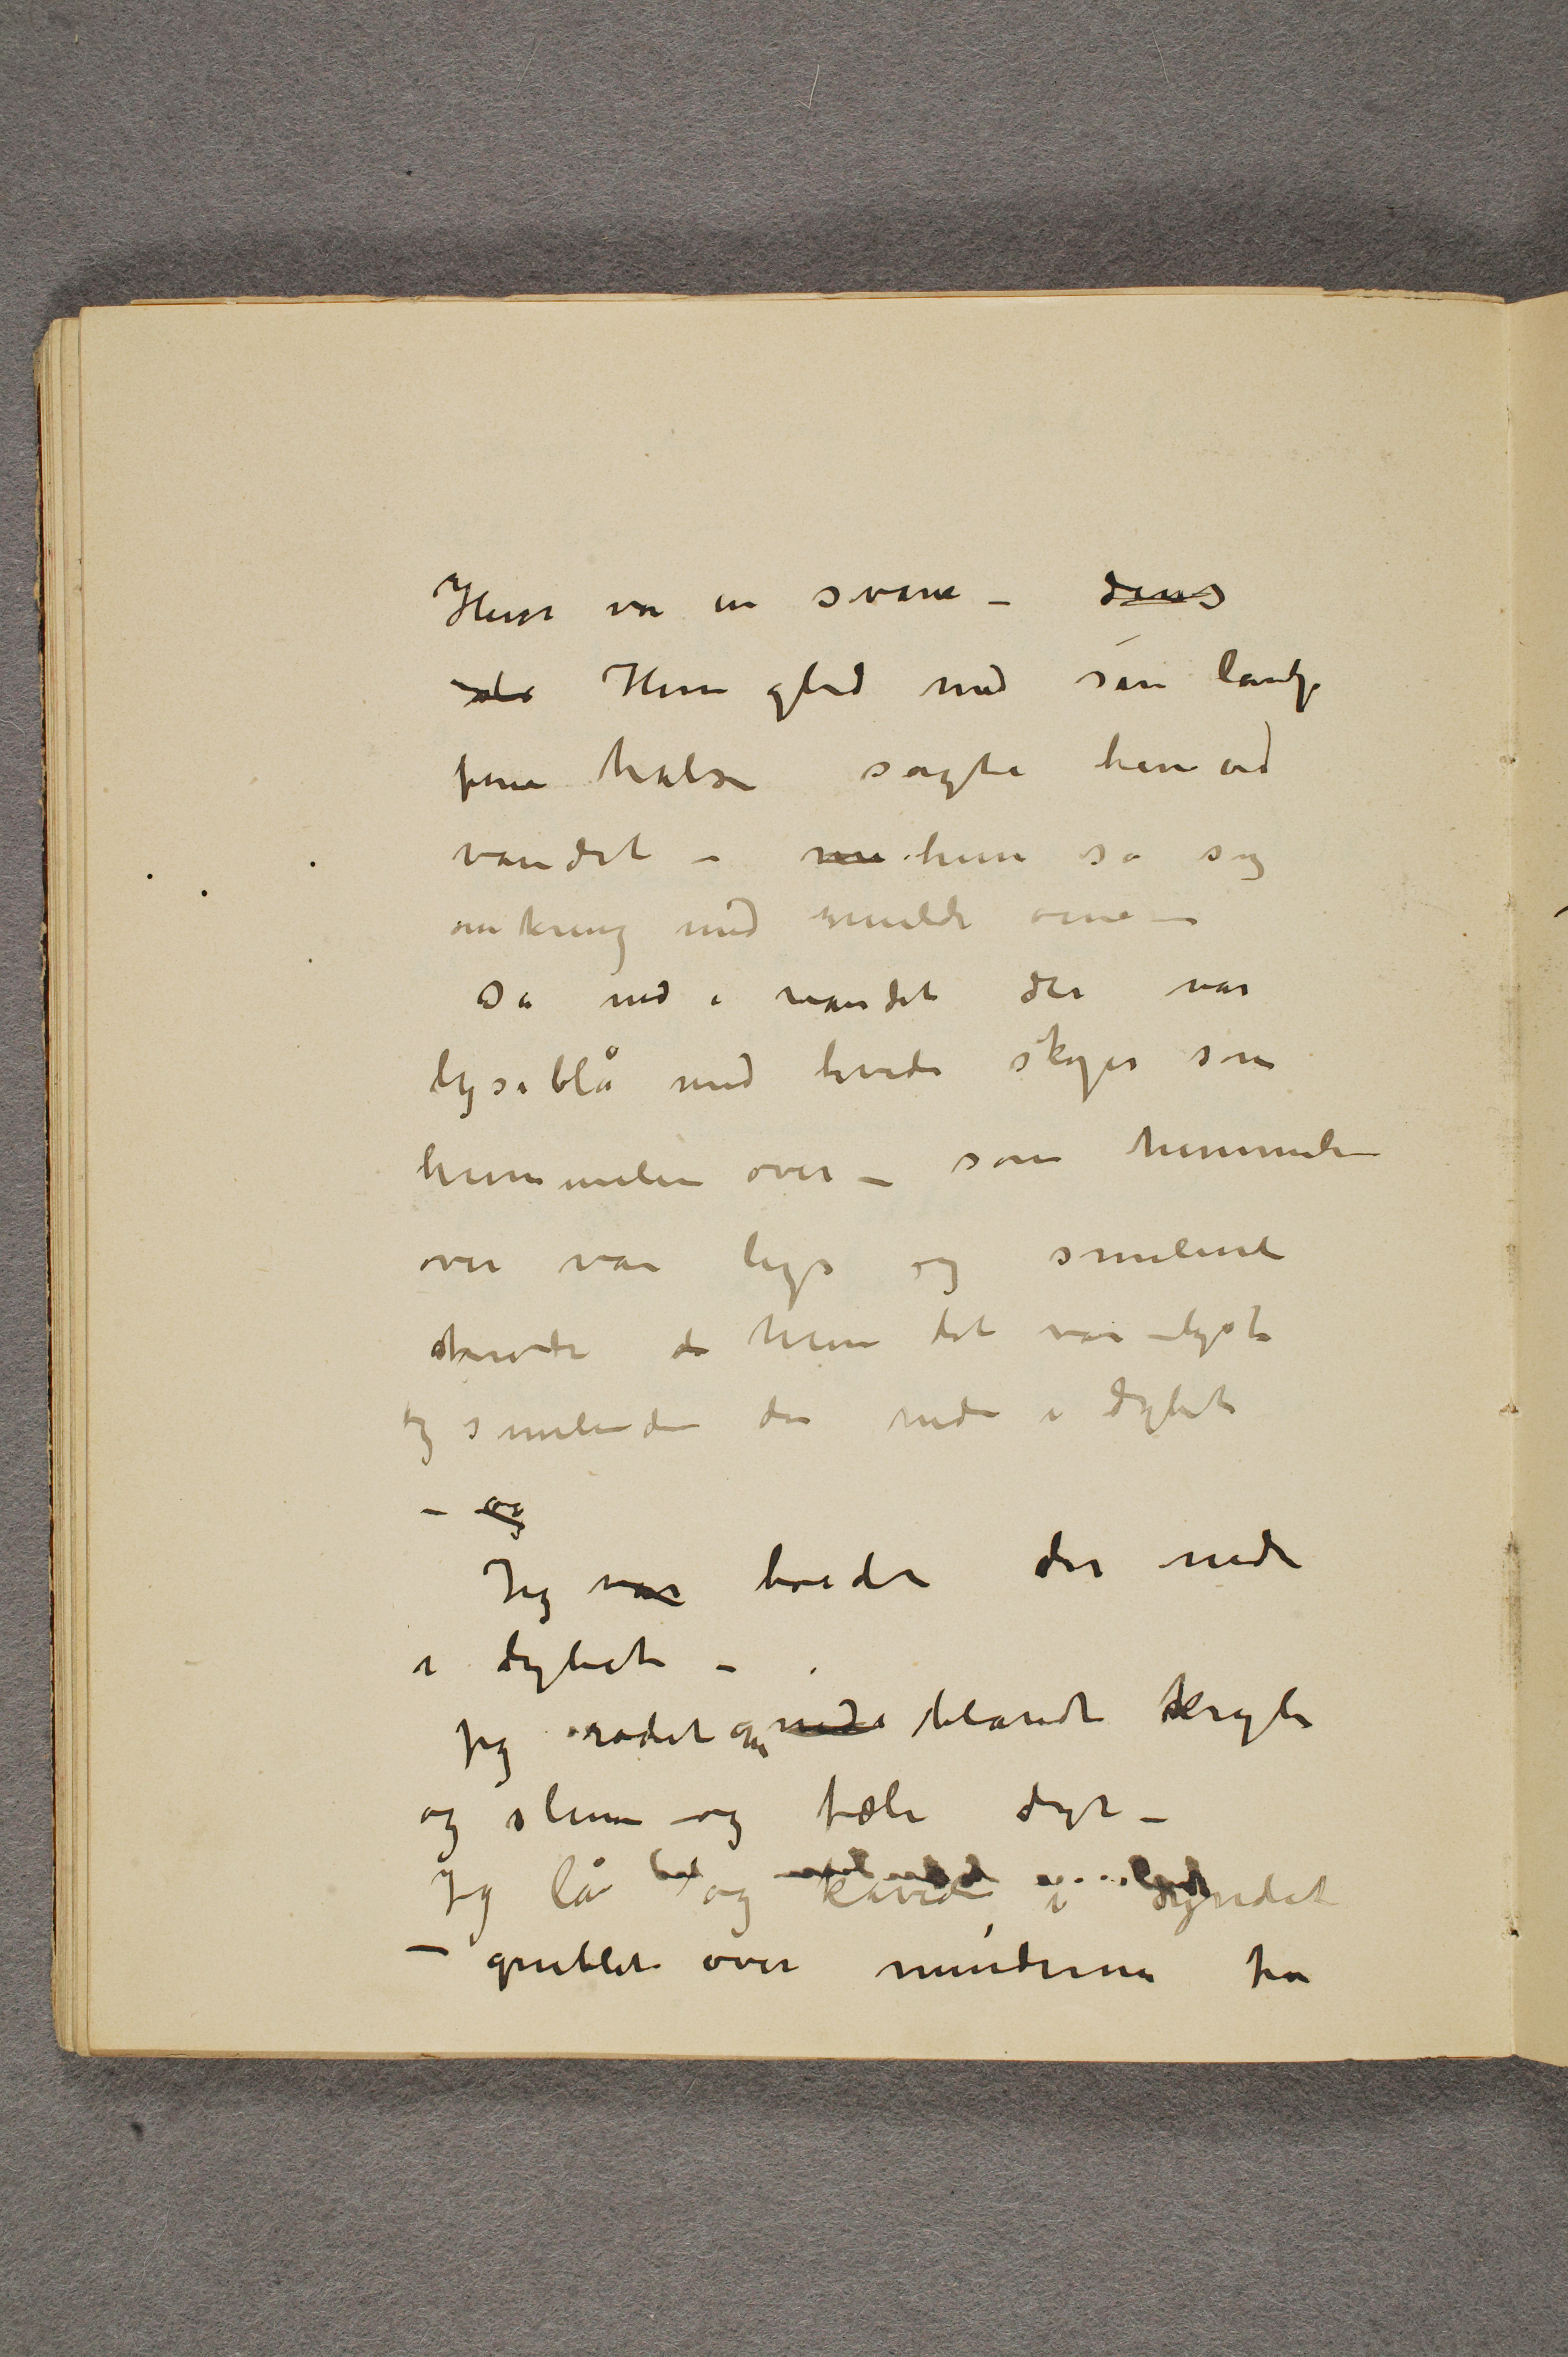 Hun var en svane – dens
Hun gled med sin lange
fine hals sagte hen ad
vandet – hun så sig
omkring med milde øine –
Så ned i vandet der var
lyseblå med hvide skyer som
himmelen over – som himmelen
over var lys og smilende
troede hun det var lyst
og smilende der nede i dybet
– og
Jeg var boede der nede
i dybet –
Jeg rodet om nede blandt kryb
og slim og fæle dyr –
Jeg lå og kavede i dyndet
– grublet over minderne fra